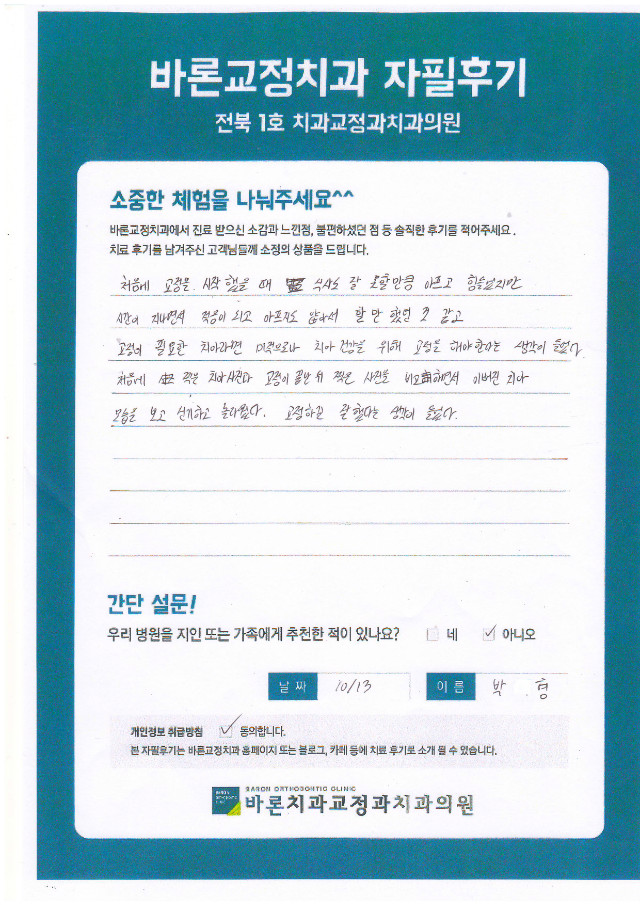 바른교정치과 자필후기
전북 1호 치과교정과치과의원
소중한 체험을 나눠주세요^^
바른교정치과에서 진료 받으신 소감과 느낀점, 불편하셨던 점 등 솔직한 후기를 적어주세요.
치료 후기를 남겨주신 고객님들께 소정의 상품을 드립니다.
처음에 교정을 시작 했을 때 식사도 잘 못할만큼 아프고 힘들었지만
시간이 지나면서 적응이 되고 아프지도 않아서 할 만 했던 것 같고
교정이 필요한 치아라면 미적으로나 치아 건강을 위해 교정을 해야한다는 생각이 들었다
처음에 찍은 치아사진과 교정이 끝난 뒤 찍은 사진을 비교해보면서 이뻐진 치아
모습을 보고 신기하고 놀라웠다. 교정하길 잘 했다는 생각이 들었다.
간단 설문!
우리 병원을 지인 또는 가족에게 추천한 적이 있나요? 네 아니오
날 짜 10/13 이 름 박 형
개인정보 취급방침 동의합니다.
본 자필후기는 바른교정치과 홈페이지 또는 블로그, 카페 등에 치료 후기로 소개 될 수 있습니다.
BARON ORTHODONTIC CLINIC
바른치과교정과치과의원